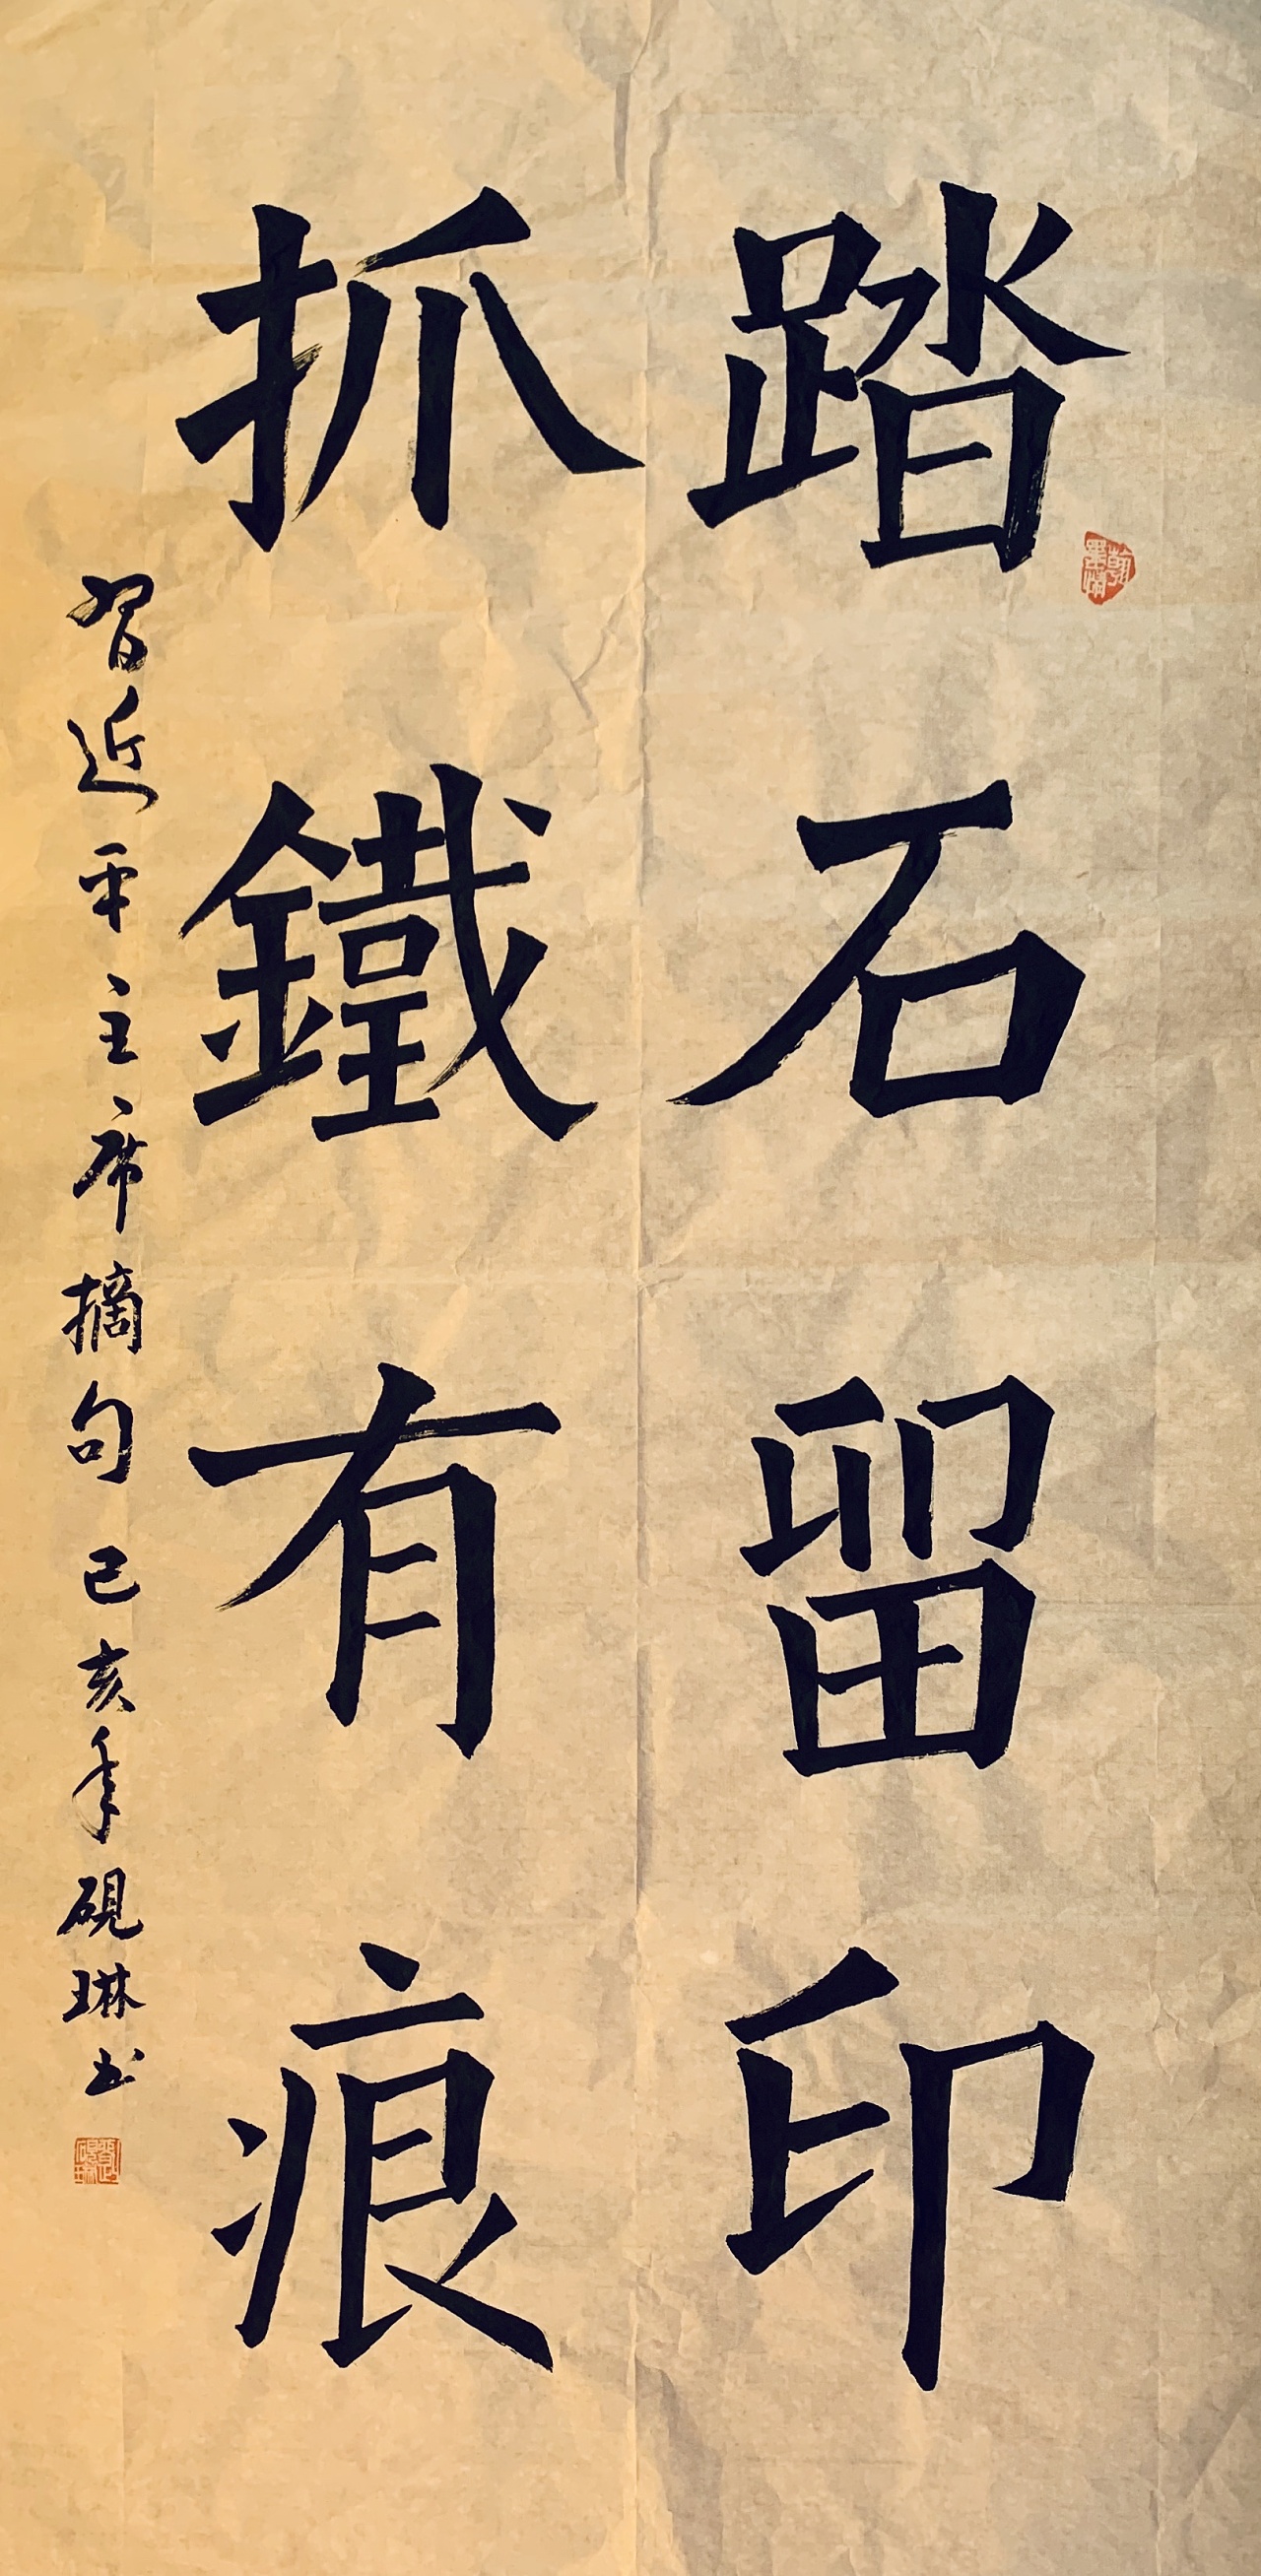 踏石留印
抓鐵有痕
習近平主席摘句己亥年硯琳书